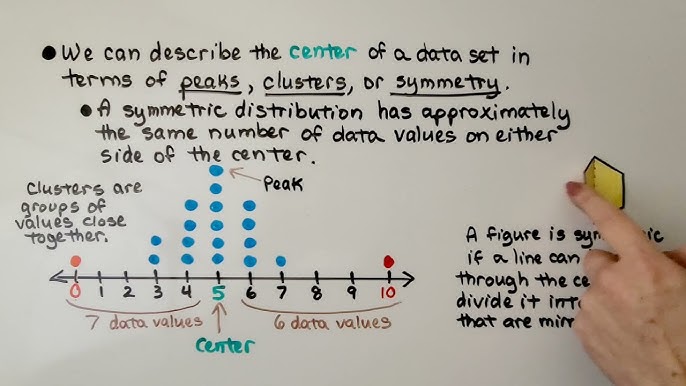 • We can describe the center of a data set in
terms of peaks, clusters, or symmetry.
• A symmetric distribution has approximately
the same number of data values on either
side of the center.
Clusters are
groups of
values close
together.
Peak
0 1 2 3 4 5 6 7 8 9 10
7 data values
6 data values
center
A figure is
if a line can
through the
divide it
that are